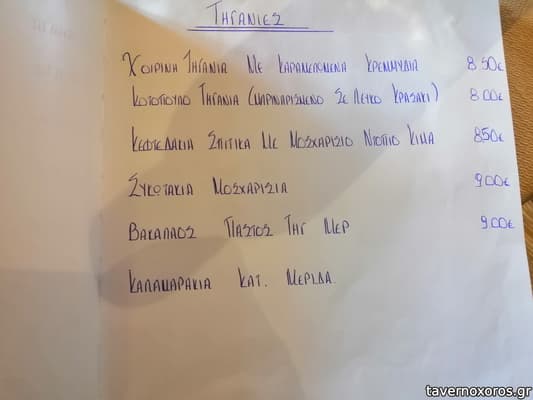 ΤΗΓΑΝΙΕΣ
ΧΟΙΡΙΝΗ ΤΗΓΑΝΙΑ ΜΕ ΚΑΡΑΜΕΛΟΜΕΝΑ ΚΡΕΜΜΥΔΙΑ 8.50€
ΚΟΤΟΠΟΥΛΟ ΤΗΓΑΝΙΑ (ΜΑΡΙΝΑΡΙΣΜΕΝΟ ΣΕ ΛΕΥΚΟ ΚΡΑΣΑΚΙ) 8.00€
ΚΕΦΤΕΔΑΚΙΑ ΣΠΙΤΙΚΑ ΜΕ ΜΟΣΧΑΡΙΣΙΟ ΝΤΟΠΙΟ ΚΙΜΑ 8.50€
ΣΥΚΩΤΑΚΙΑ ΜΟΣΧΑΡΙΣΙΑ 9.00€
ΒΑΚΑΛΑΟΣ ΠΑΣΤΟΣ ΤΗΓ ΜΕΡ 9.00€
ΚΑΛΑΜΑΡΑΚΙΑ ΚΑΤ. ΜΕΡΙΔΑ.
tavernoxoros.gr